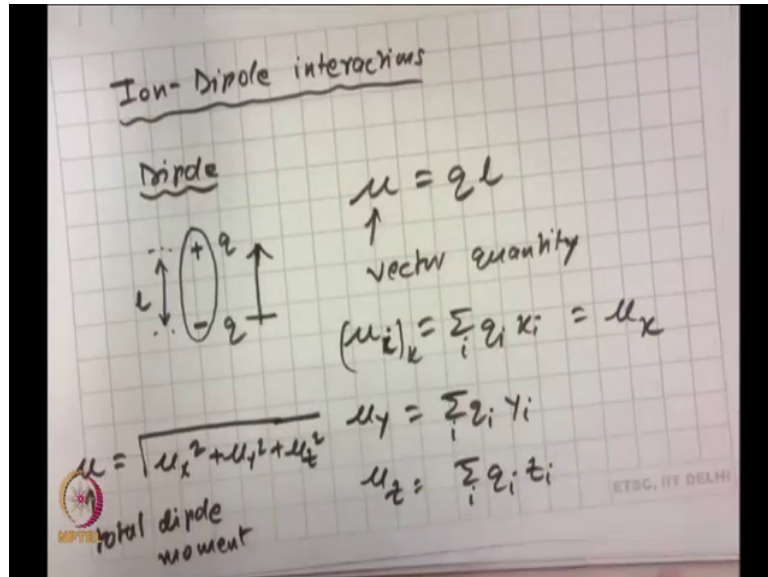 Ion-Dipole interactions
Dipole
μ = ql
↑
vector quantity
l + q
- q
(μi)x = Σi qi xi = μx
μy = Σi qi yi
μz = Σi qi zi
μ = √μx² + μy² + μz²
↑
total dipole
moment
NPTEL
ETSC, IIT DELHI